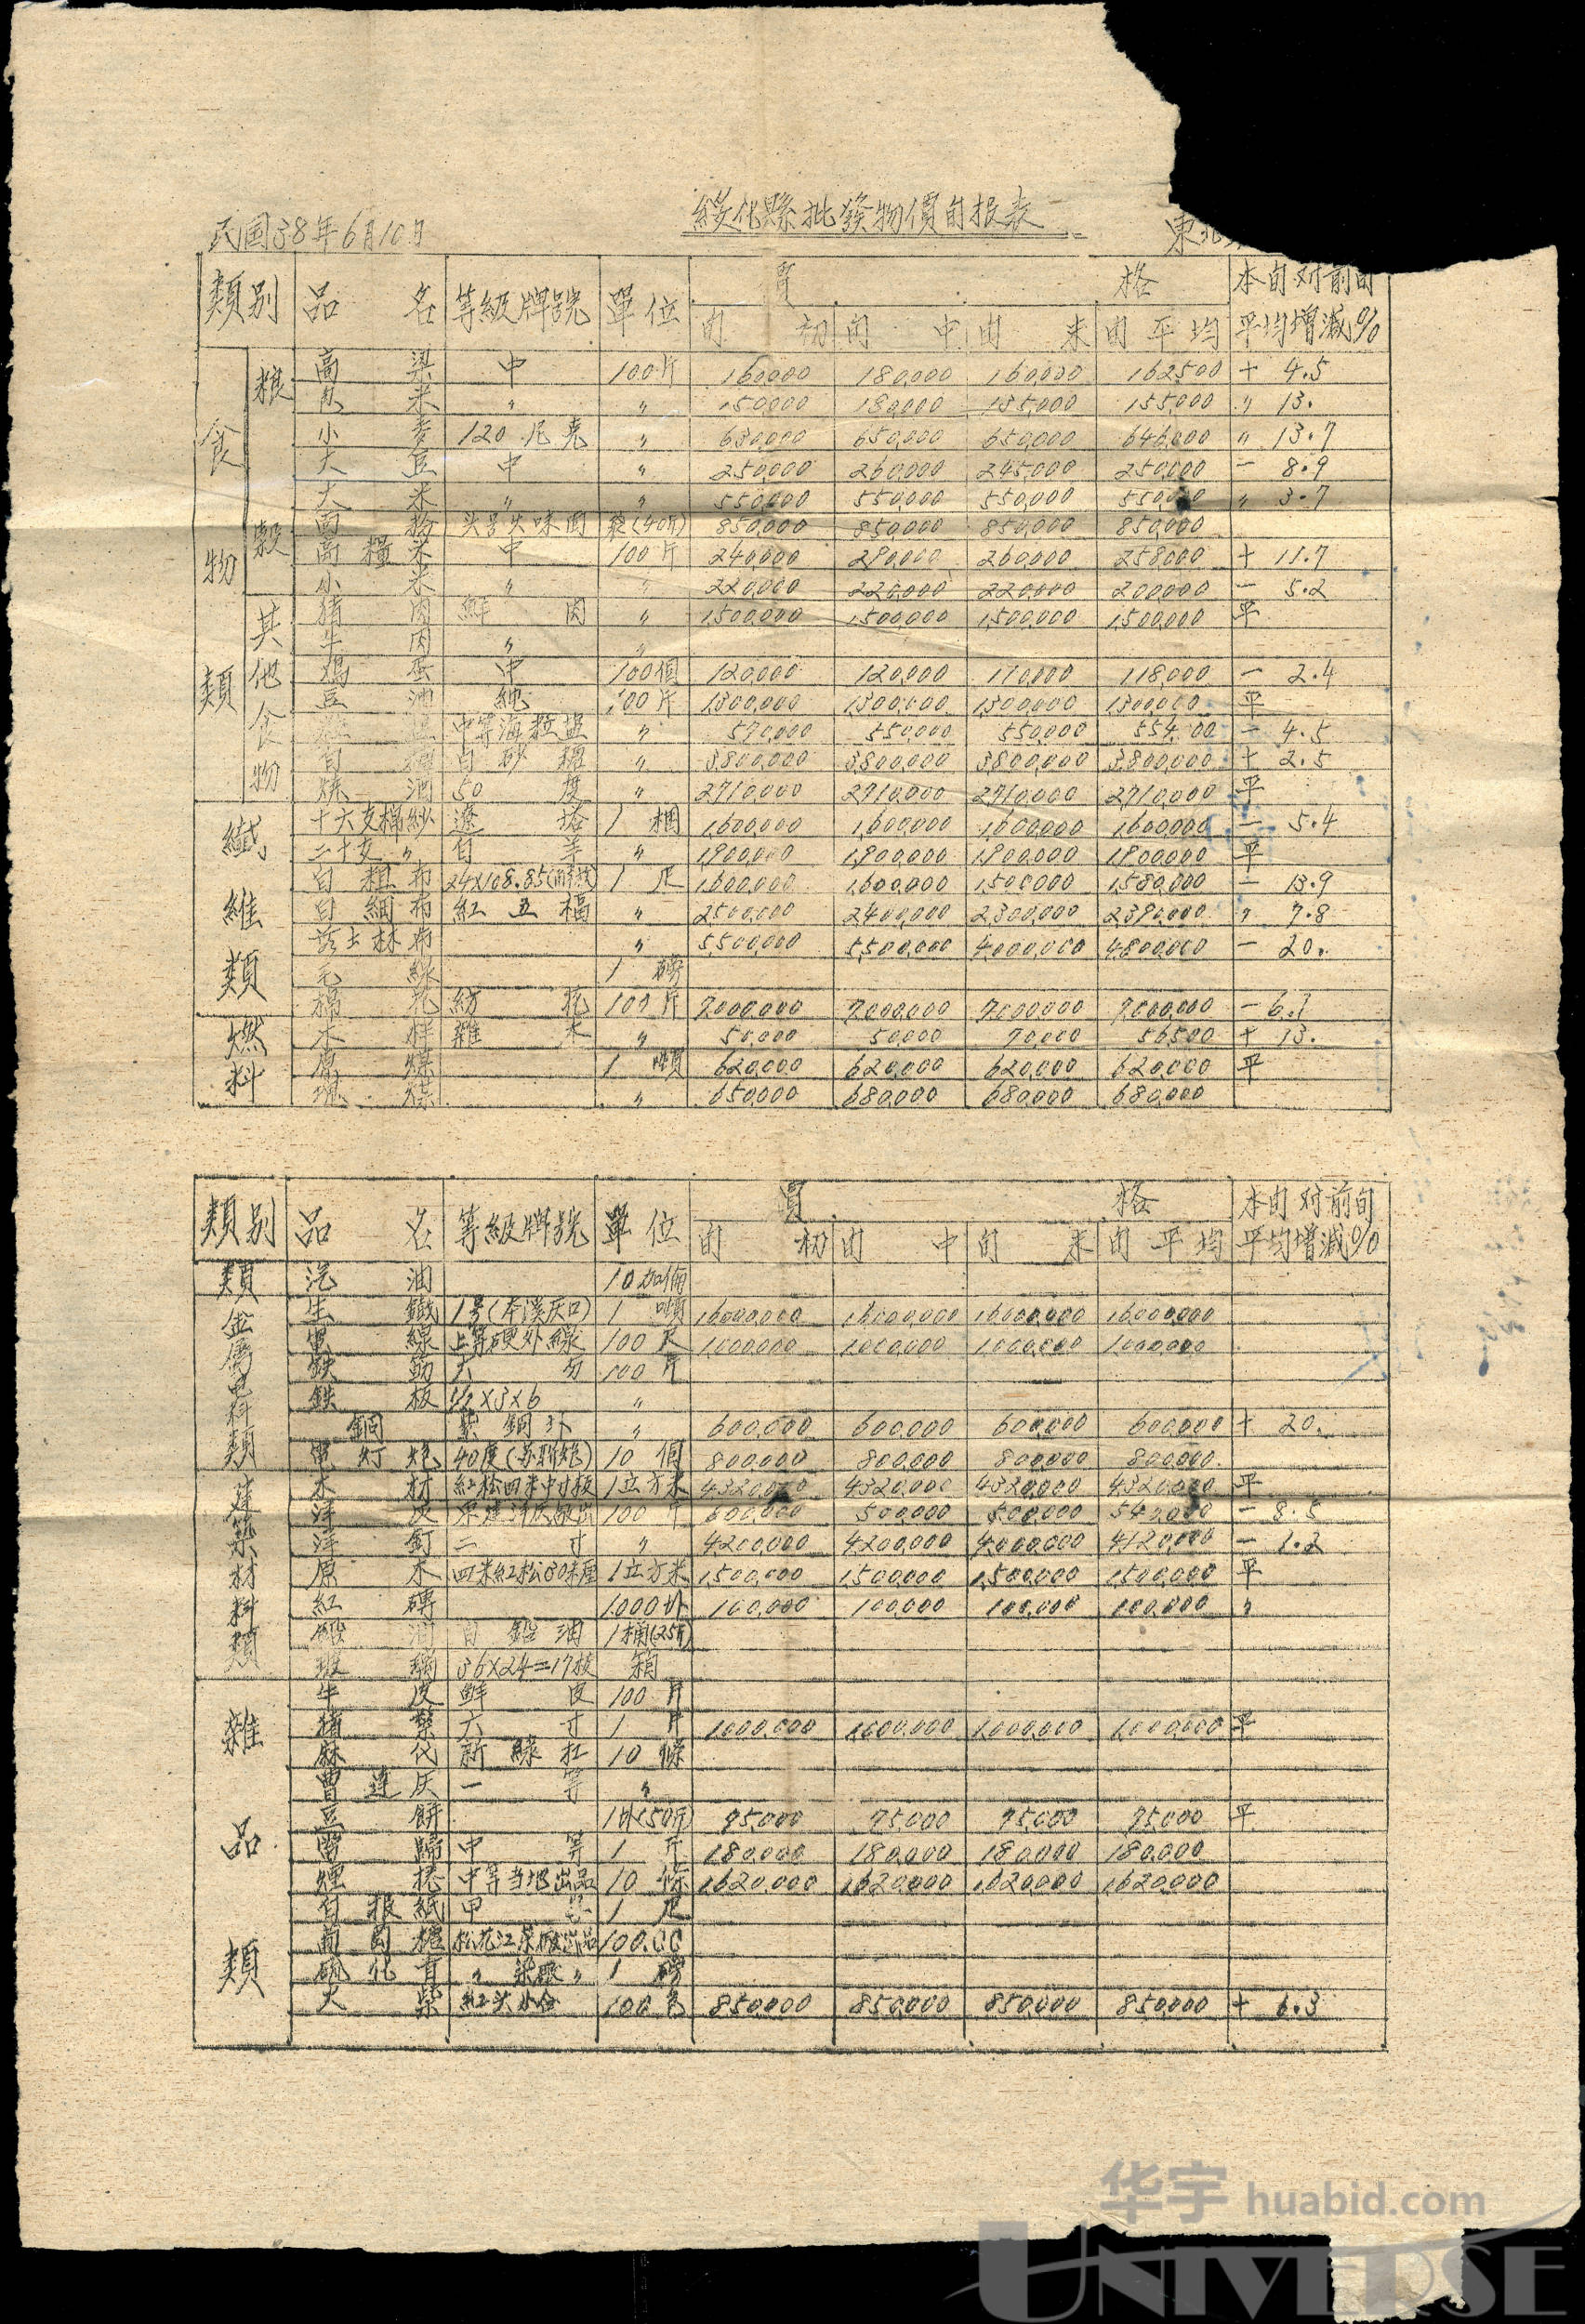 綏化縣批發物價旬报表
民国38年6月10日
東北
類别 品名 等級牌號 單位 價格 本旬对前旬平均增減%
旬初 旬中 旬末 旬平均
食物類
粮穀
高粱 中 100斤 160,000 180,000 160,000 162,500 + 4.5
米 〃 〃 150,000 180,000 135,000 155,000 〃 13.
小麦 120 〃 630,000 650,000 650,000 646,000 〃 13.7
大豆 中 〃 250,000 260,000 245,000 250,000 - 8.9
大米 〃 〃 550,000 550,000 550,000 550,000 〃 3.7
面粉 850,000 850,000 850,000 850,000
高糧米 中 100斤 240,000 290,000 260,000 258,000 + 11.7
小米 〃 〃 220,000 220,000 220,000 200,000 - 5.2
其他食物
猪肉 鮮肉 〃 1,500,000 1,500,000 1,500,000 1,500,000 平
牛肉 〃 〃
鸡蛋 中 100個 120,000 120,000 110,000 118,000 - 2.4
豆油 純 100斤 1,300,000 1,300,000 1,300,000 1,300,000 平
中等海粒盐 〃 570,000 550,000 550,000 - 4.5
白糖 白砂糖 〃 3,800,000 3,800,000 3,800,000 3,800,000 + 2.5
烧酒 50度 〃 2,710,000 2,710,000 2,710,000 2,710,000 平
纖維類
十六支棉紗 遼塔 1捆 1,600,000 1,600,000 1,600,000 1,600,000 - 5.4
二十支〃 白羊 〃 1,900,000 1,900,000 1,900,000 1,900,000 平
白粗布 24×108.85 1疋 1,600,000 1,600,000 1,500,000 1,580,000 - 13.9
白細布 紅五福 〃 2,500,000 2,400,000 2,300,000 2,390,000 〃 7.8
士林布 〃 5,500,000 5,500,000 4,000,000 4,800,000 - 20.
毛線 1磅
棉花 紡花 100斤 7,000,000 7,000,000 7,000,000 7,000,000 - 6.1
燃料
木柈 雜木 〃 50,000 50,000 70,000 56,500 + 13.
原煤 1噸 620,000 620,000 620,000 620,000 平
塊煤 〃 650,000 680,000 680,000 680,000
類别 品名 等級牌號 單位 價格 本旬对前旬平均增減%
旬初 旬中 旬末 旬平均
類 汽油 10加侖
金属器料類
生鐵 1号(本溪灰口) 1噸 16,000,000 16,000,000 16,000,000 16,000,000
電線 上等硬外線 100尺 1,000,000 1,000,000 1,000,000 1,000,000
鉄筋 六分 100斤
鉄板 1/2×3×6 〃
銅 紫銅 〃 600,000 600,000 600,000 600,000 + 20.
電灯炮 40度 10個 800,000 800,000 800,000 800,000
建築材料類
木材 紅松四米中寸板 1立方米 4,320,000 4,320,000 4,320,000 4,320,000 平
洋灰 100斤 600,000 500,000 500,000 540,000 - 8.5
洋釘 二寸 〃 4,200,000 4,200,000 4,000,000 4,120,000 - 1.2
原木 四米紅松30 1立方米 1,500,000 1,500,000 1,500,000 1,500,000 平
紅磚 1000 100,000 100,000 100,000 100,000 〃
油 白鉛油 1桶(25斤)
36×24=17枚 箱
雜品類
牛皮 鮮皮 100斤
猪鬃 六寸 1斤 1,000,000 1,000,000 1,000,000 1,000,000 平
麻代 新綠杠 10條
曹達灰 一等 〃
豆餅 (50斤) 95,000 95,000 95,000 95,000 平
當歸 中等 1斤 180,000 180,000 180,000 180,000
煙捲 中等当地出品 10條 1,620,000 1,620,000 1,620,000 1,620,000
白报紙 甲 1疋
葡萄糖 松花江 100.CC
硫化青 〃 〃 1磅
火柴 紅头小合 100包 850,000 850,000 850,000 850,000 + 6.3
华宇 huabid.com
UNIVERSE